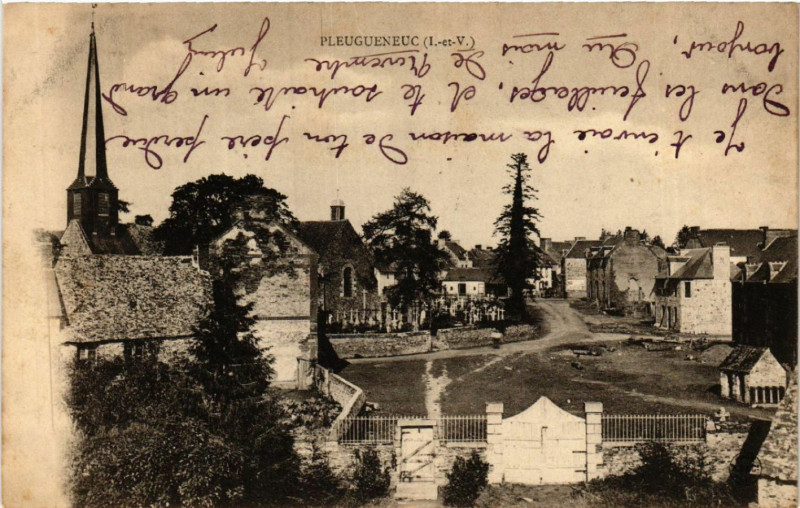 PLEUGUENEUC (I.-et-V.)
Je t'envoie la maison de ton père perdue
dans les feuillages, et te souhaite un grand
bonjour, du mois de Novembre